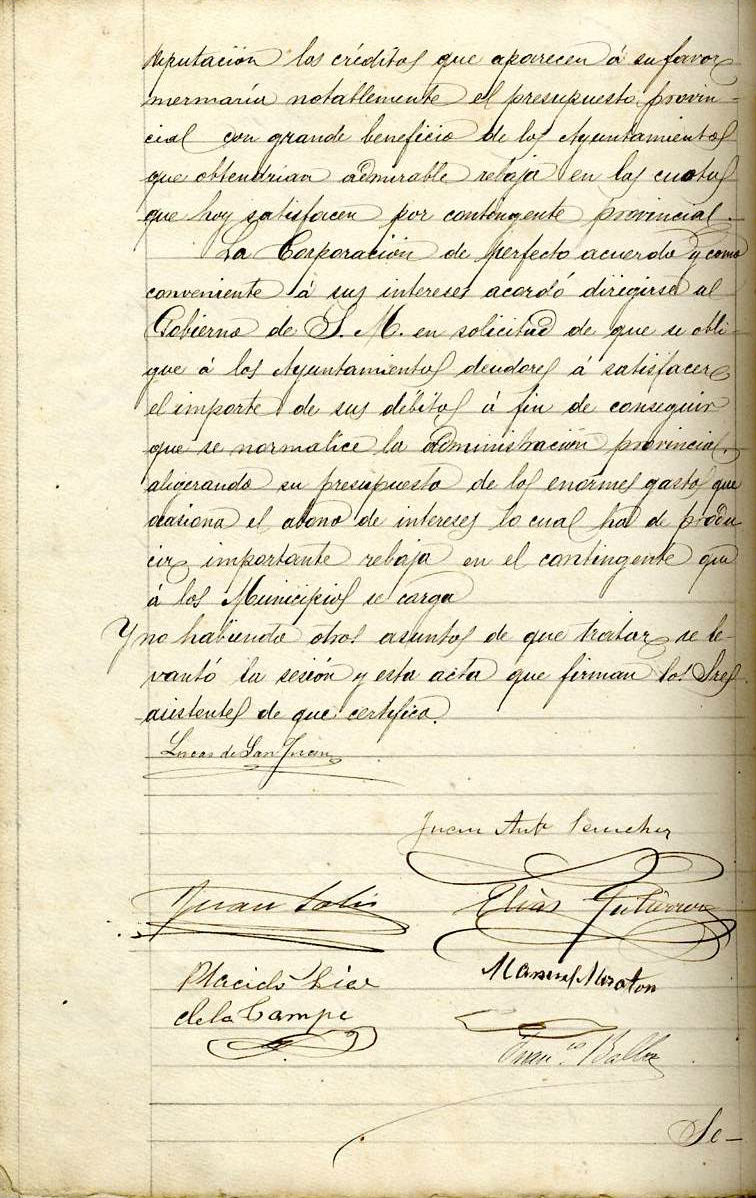 diputación los créditos que aparecen á su favor
mermaría notablemente el presupuesto provin-
cial con grande beneficio de los Ayuntamientos
que obtendrian admirable rebaja en las cuotas
que hoy satisfacen por contingente provincial.
La Corporación de perfecto acuerdo y como
conveniente á sus intereses acordó dirigirse al
Gobierno de S. M. en solicitud de que se obli-
gue á los Ayuntamientos deudores á satisfacer
el importe de sus débitos á fin de conseguir
que se normalice la administración provincial,
aligerando su presupuesto de los enormes gastos que
ocasiona el abono de intereses lo cual ha de produ
cir importante rebaja en el contingente que
á los Municipios se carga
Y no habiendo otros asuntos de que tratar se le-
vantó la sesión y esta acta que firman los Sres
asistentes de que certifico.
Lucas de San Juan
Juan Anto Sanchez
Juan Solis
Elias Gutierrez
Placido Diaz
de la Campa
Manuel Moraton
Franco
Se-